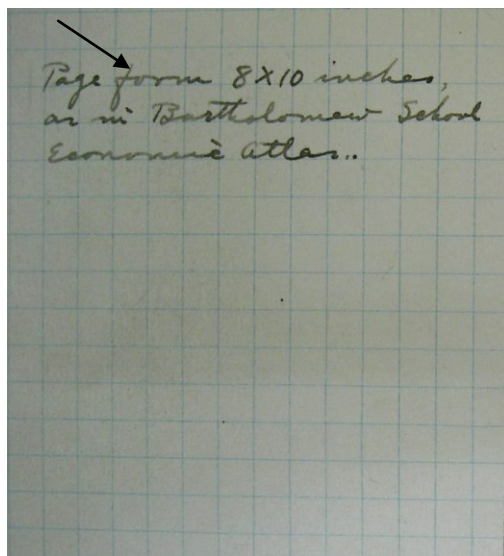 Page form 8X10 inches,
as in Bartholomew School
Economic Atlas..